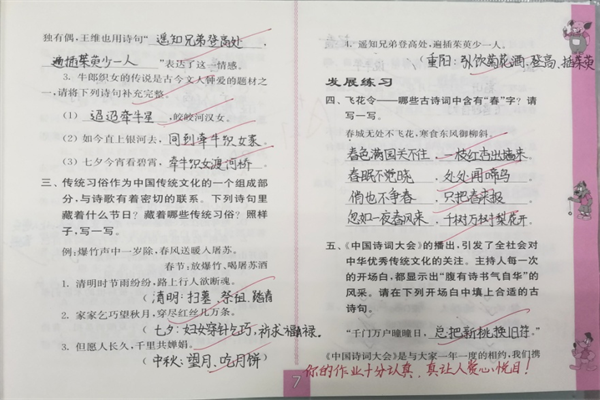 独有偶，王维也用诗句“遥知兄弟登高处，
遍插茱萸少一人”表达了这一情感。
3. 牛郎织女的传说是古今文人钟爱的题材之
一，请将下列诗句补充完整。
（1）迢迢牵牛星，皎皎河汉女。
（2）如今直上银河去，同到牵牛织女家。
（3）七夕今宵看碧霄，牵牛织女渡河桥。
三、传统习俗作为中国传统文化的一个组成部
分，与诗歌有着密切的联系。下列诗句里
藏着什么节日？藏着哪些习俗？照样
子，写一写。
例：爆竹声中一岁除，春风送暖入屠苏。
春节：放爆竹、喝屠苏酒
1. 清明时节雨纷纷，路上行人欲断魂。
（清明：扫墓、祭祖、踏青）
2. 家家乞巧望秋月，穿尽红丝几万条。
（七夕：妇女穿针乞巧、祈求福禄。）
3. 但愿人长久，千里共婵娟。
（中秋：望月、吃月饼）
7
4. 遥知兄弟登高处，遍插茱萸少一人。
（重阳：饮菊花酒、登高、插茱萸
发展练习
四、飞花令——哪些古诗词中含有“春”字？请
写一写。
春城无处不飞花，寒食东风御柳斜。
春色满园关不住，一枝红杏出墙来
春眠不觉晓，处处闻啼鸟
俏也不争春，只把春来报
忽如一夜春风来，千树万树梨花开
五、《中国诗词大会》的播出，引发了全社会对
中华优秀传统文化的关注。主持人每一次
的开场白，都显示出“腹有诗书气自华”的
风采。请在下列开场白中填上合适的古
诗句。
“千门万户曈曈日，总把新桃换旧符。”
《中国诗词大会》是与大家一年一度的相约，我们携
你的作业十分认真，真让人赏心悦目！